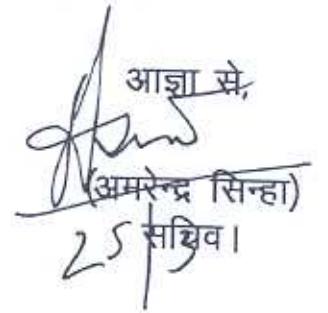 आज्ञा से,
(अमरेन्द्र सिन्हा)
सचिव।
25/3